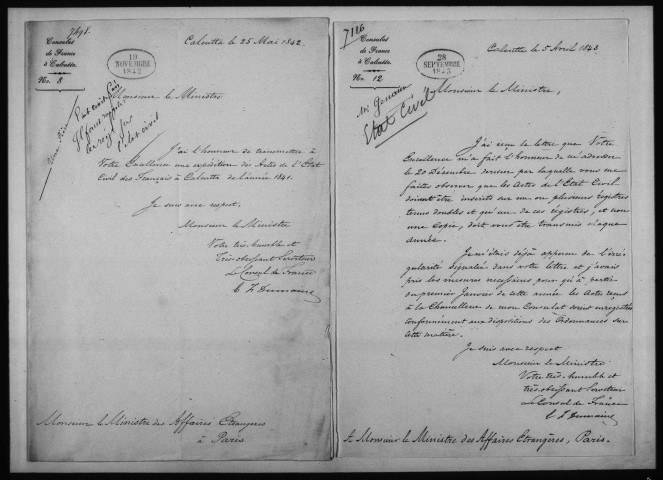 7491.
Consulat
de France
à Calcutta.
No. 8
19
NOVEMBRE
1842
Calcutta le 25 Mai 1842.
l'état civil
Monsieur le Ministre
J'ai l'honneur de transmettre à
Votre Excellence une expédition des Actes de l'Etat
Civil des Français à Calcutta de l'année 1841.
Je suis avec respect,
Monsieur le Ministre
Votre très-humble et
Très-obéissant Serviteur
Le Consul de France
Monsieur le Ministre des Affaires Etrangères
à Paris
7116
Consulat
de France
à Calcutta.
No. 12
28
SEPTEMBRE
1843
Calcutta le 5 Avril 1843
Etat Civil
Monsieur le Ministre,
J'ai reçu la lettre que Votre
Excellence m'a fait l'honneur de m'adresser
le 20 Décembre dernier par laquelle vous me
faites observer que les Actes de l'Etat Civil
doivent être inscrits sur un ou plusieurs registres
tenus doubles et qu'un de ces registres, et non
une Copie, doit vous être transmis chaque
année.
Je m'étais déjà apperçu de l'irré-
gularité signalée dans votre lettre et j'avais
pris les mesures necessaires pour qu'à partir
du premier Janvier de cette année les Actes reçus
à la Chancellerie de mon Consulat soient enregistrés
conformément aux dispositions des Ordonnances sur
cette matière.
Je suis avec respect
Monsieur le Ministre
Votre très-humble et
très-obéissant Serviteur
Le Consul de France
A Monsieur le Ministre des Affaires Etrangères, Paris.